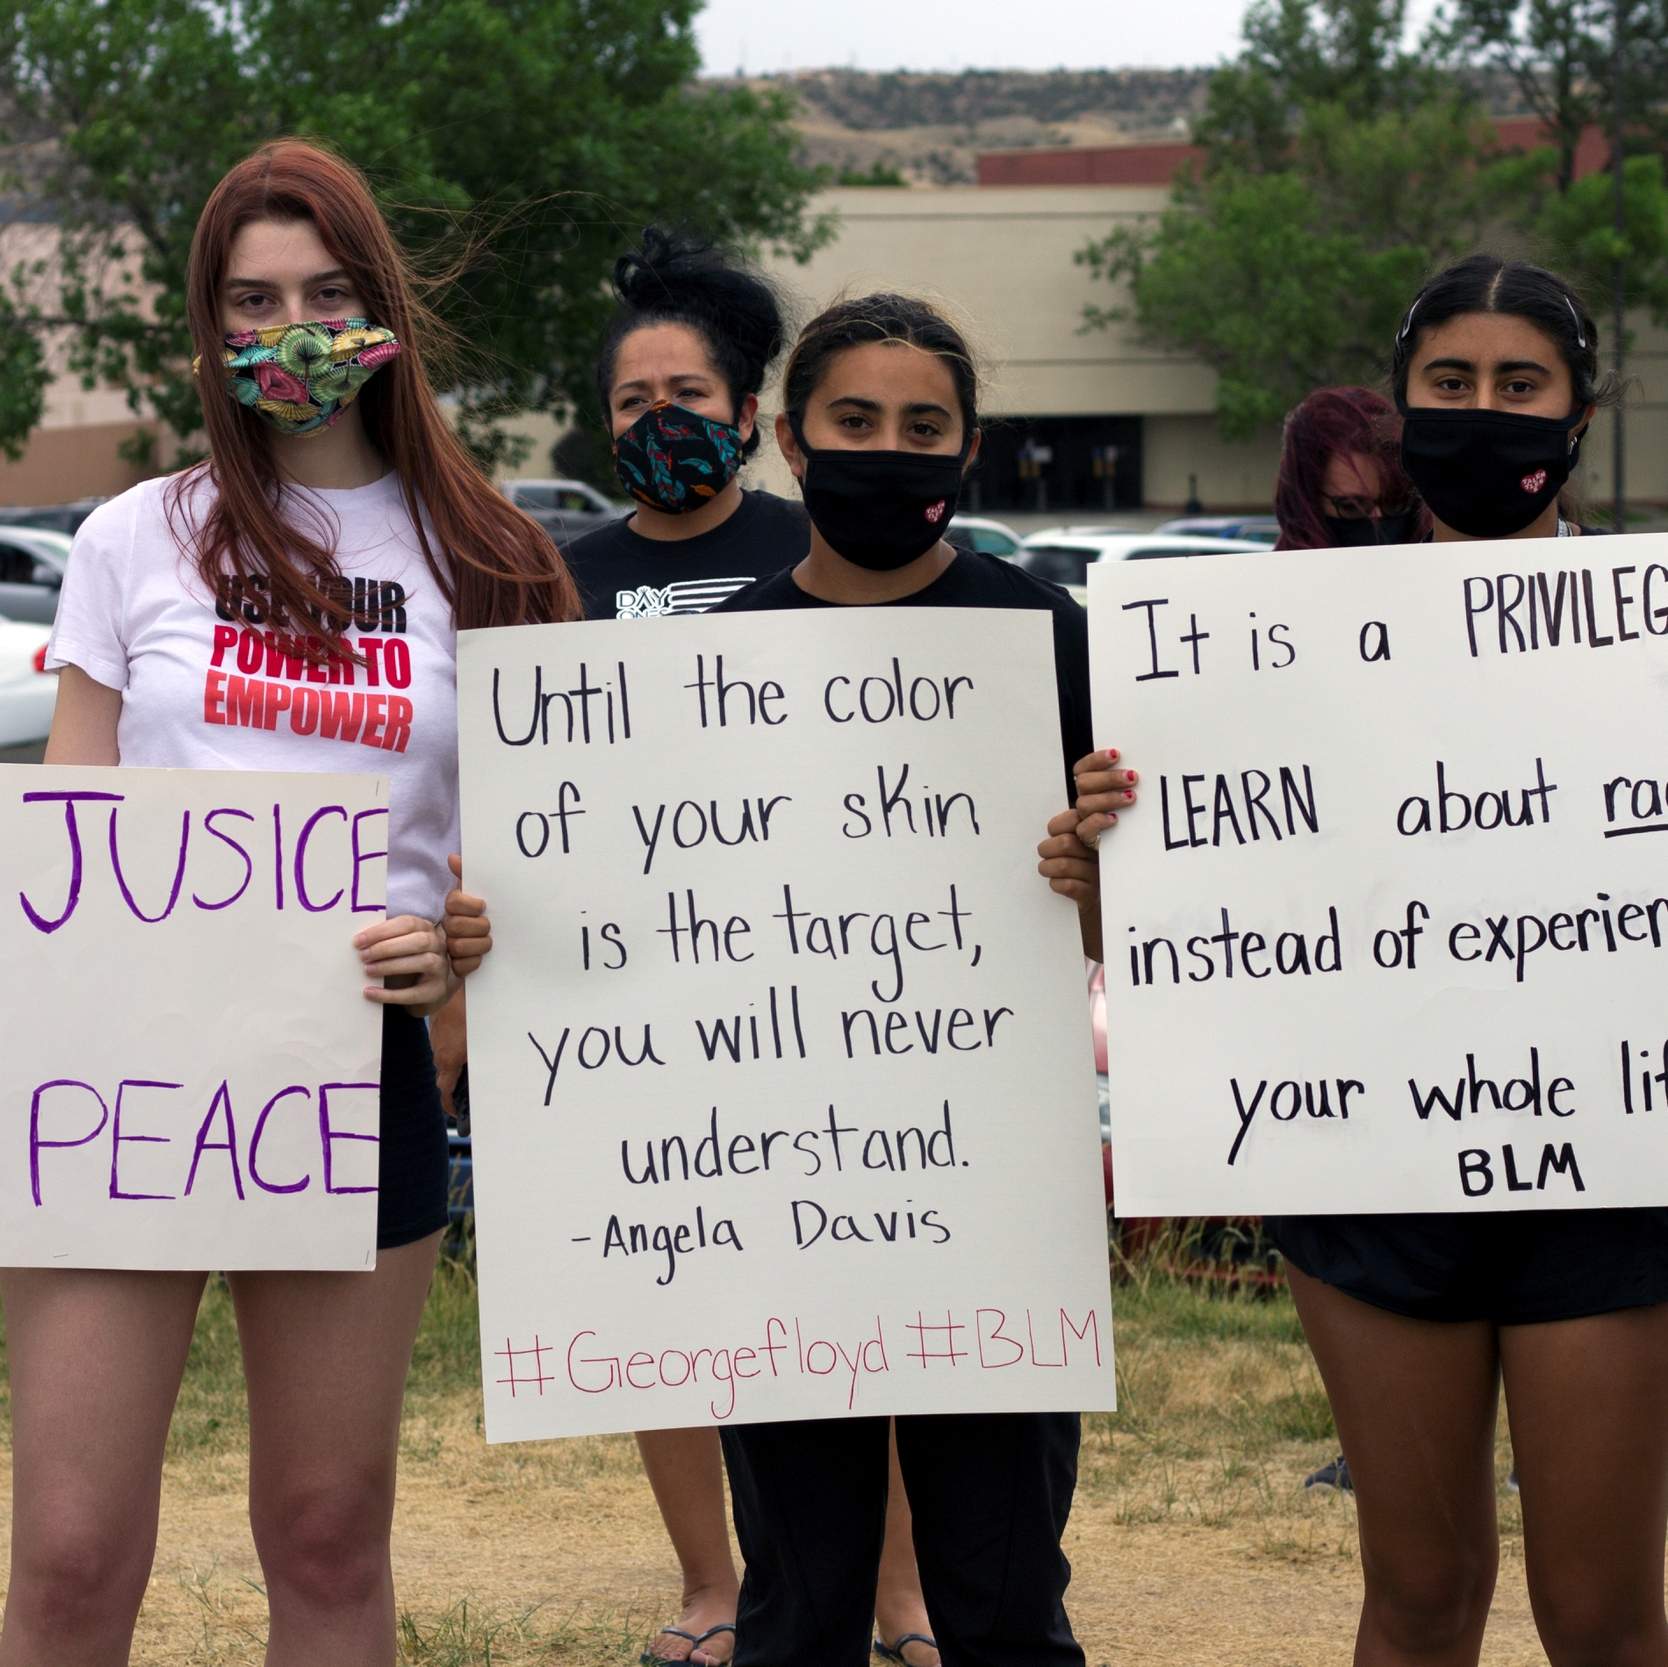 USE YOUR
POWER TO
EMPOWER
DAY
ONES
JUSICE
PEACE
Until the color
of your skin
is the target,
you will never
understand.
-Angela Davis
#Georgefloyd #BLM
It is a PRIVILEG
LEARN about rac
instead of experien
your whole lif
BLM